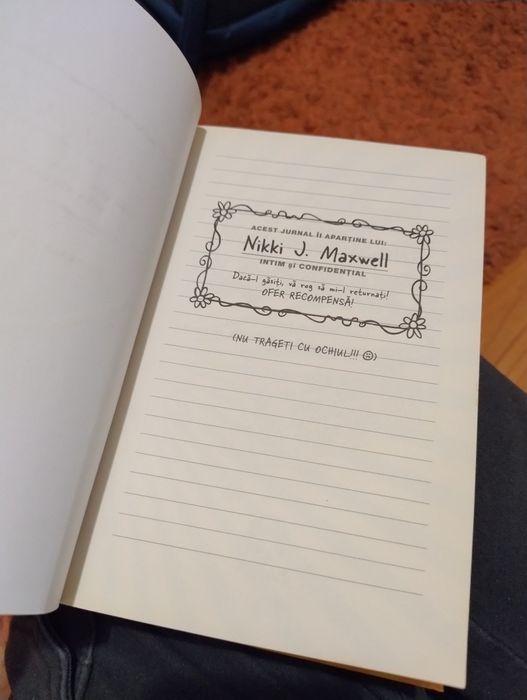 ACEST JURNAL ÎI APARȚINE LUI:
Nikki J. Maxwell
INTIM și CONFIDENȚIAL
Dacă-l găsiți, vă rog să mi-l returnați!
OFER RECOMPENSĂ!
(NU TRAGEȚI CU OCHIUL!!! ☹)